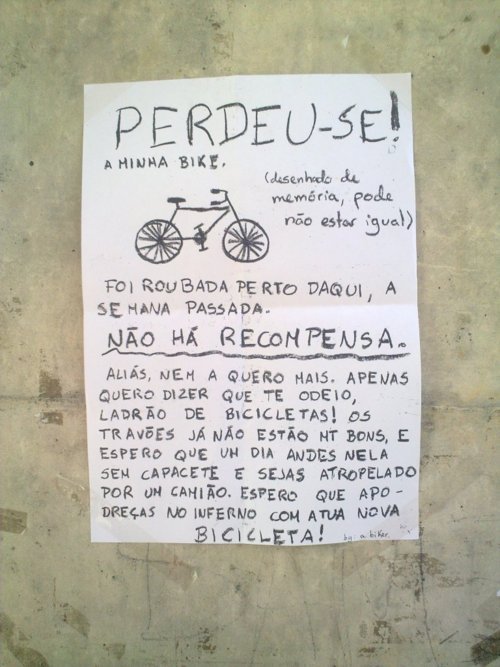 PERDEU-SE!
A MINHA BIKE.
(desenhado de
memória, pode
não estar igual)
FOI ROUBADA PERTO DAQUI, A
SEMANA PASSADA.
NÃO HÁ RECOMPENSA.
ALIÁS, NEM A QUERO MAIS. APENAS
QUERO DIZER QUE TE ODEIO,
LADRÃO DE BICICLETAS! OS
TRAVÕES JÁ NÃO ESTÃO MT BONS, E
ESPERO QUE UM DIA ANDES NELA
SEM CAPACETE E SEJAS ATROPELADO
POR UM CAMIÃO. ESPERO QUE APO-
DREÇAS NO INFERNO COM A TUA NOVA
BICICLETA!
by: a biker.